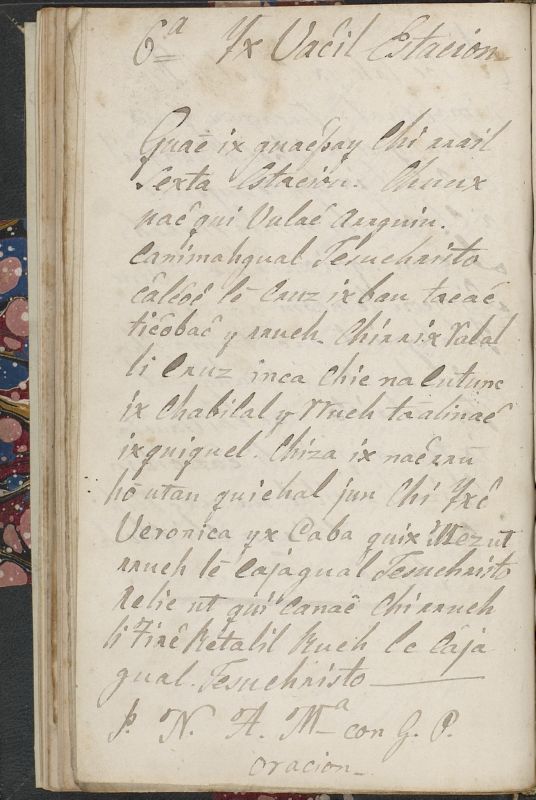 6ª Yx Vaĉil Estacion
Guaē ix quaĉpay Chi rrail
Sexta Estación. Chunux
naĉ qui Vulaĉ arrquin.
Canimahqual Jesuchristo
câlĉoĉ lē Cruz ix bau taĉaĉ
tiĉobaĉ y rruch. Chirrix Valal
li Cruz inca Chic na Cutunc
ix Chabilal y Wuch taalinaĉ
ixquiquel. Chiza ix naĉrrū
hō utan quichal jun Chi Yxĉ
Veronica yx Caba quix Mez ut
rruch lē Cajagual Jesuchristo
Relic ut qui canaĉ Chirruch
li Tirĉ Retalil Ruch le Caja
gual Jesuchristo
P. N. A. Mª con G. P.
oracion